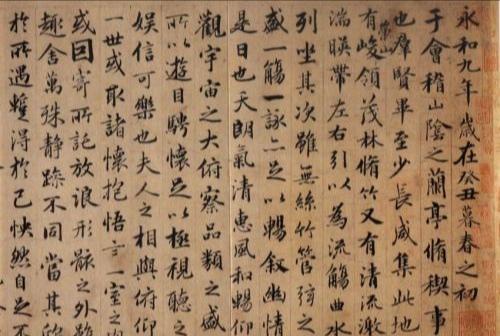 永和九年歲在癸丑暮春之初
于會稽山陰之蘭亭脩稧事
也群賢畢至少長咸集此地
有崇山峻領茂林脩竹又有清流激
湍暎帶左右引以為流觴曲水
列坐其次雖無絲竹管弦之
盛一觴一詠亦足以暢叙幽情
是日也天朗氣清惠風和暢仰
觀宇宙之大俯察品類之盛
所以遊目騁懷足以極視聽之
娛信可樂也夫人之相與俯仰
一世或取諸懷抱悟言一室之內
或因寄所託放浪形骸之外雖
趣舍萬殊静躁不同當其欣
於所遇蹔得於己怏然自足不